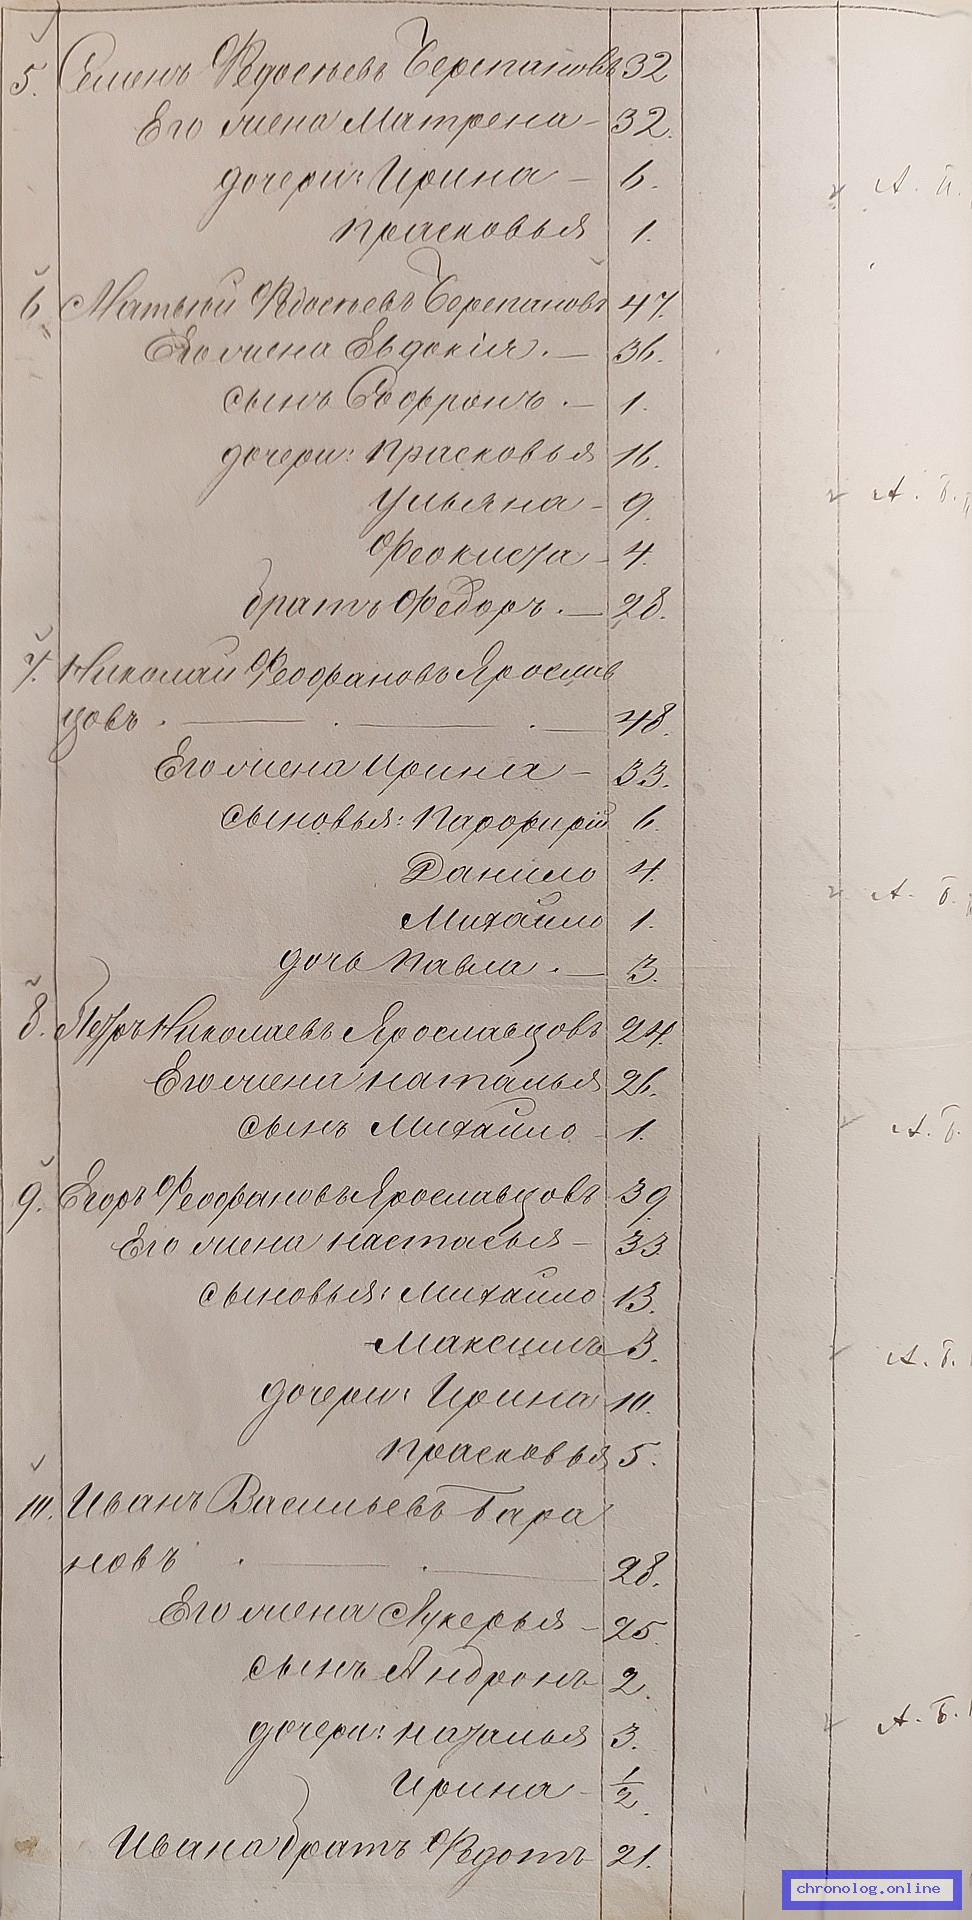 5. Семенъ Ѳедосѣевъ Черепановъ 32
Его жена Матрена - 32.
дочери: Ирина - 6.
Прасковья 1.
А. Б.
6. Матвѣй Ѳедосѣевъ Черепановъ 47.
Его жена Евдокія. - 36.
сынъ Софронъ. - 1.
дочери: Прасковья 16.
А. Б.
Ульяна - 9.
Феокиста - 4.
братъ Федоръ. - 28.
7. Николай Феофановъ Ярослав
цовъ. - . - . - 48.
Его жена Ирина - 33.
сыновья: Парфирій 6.
Данило 4.
А. Б.
Михайло 1.
дочь Павла. - 3.
8. Петръ Николаевъ Ярославцовъ 24.
Его жена Наталья 26.
сынъ Михайло - 1.
А. Б.
9. Егоръ Феофановъ Ярославцовъ 39
Его жена Настасья - 33
сыновья: Михайло 13.
Максимъ 3.
А. Б.
дочери: Ирина 10.
Прасковья 5.
10. Иванъ Васильевъ Бара
новъ . - . - 28.
Его жена Лукерья - 25.
сынъ Андронъ 2.
А. Б.
дочери: Наталья 3.
Ирина - 1/2.
Ивана братъ Ѳедотъ 21.
chronolog.online